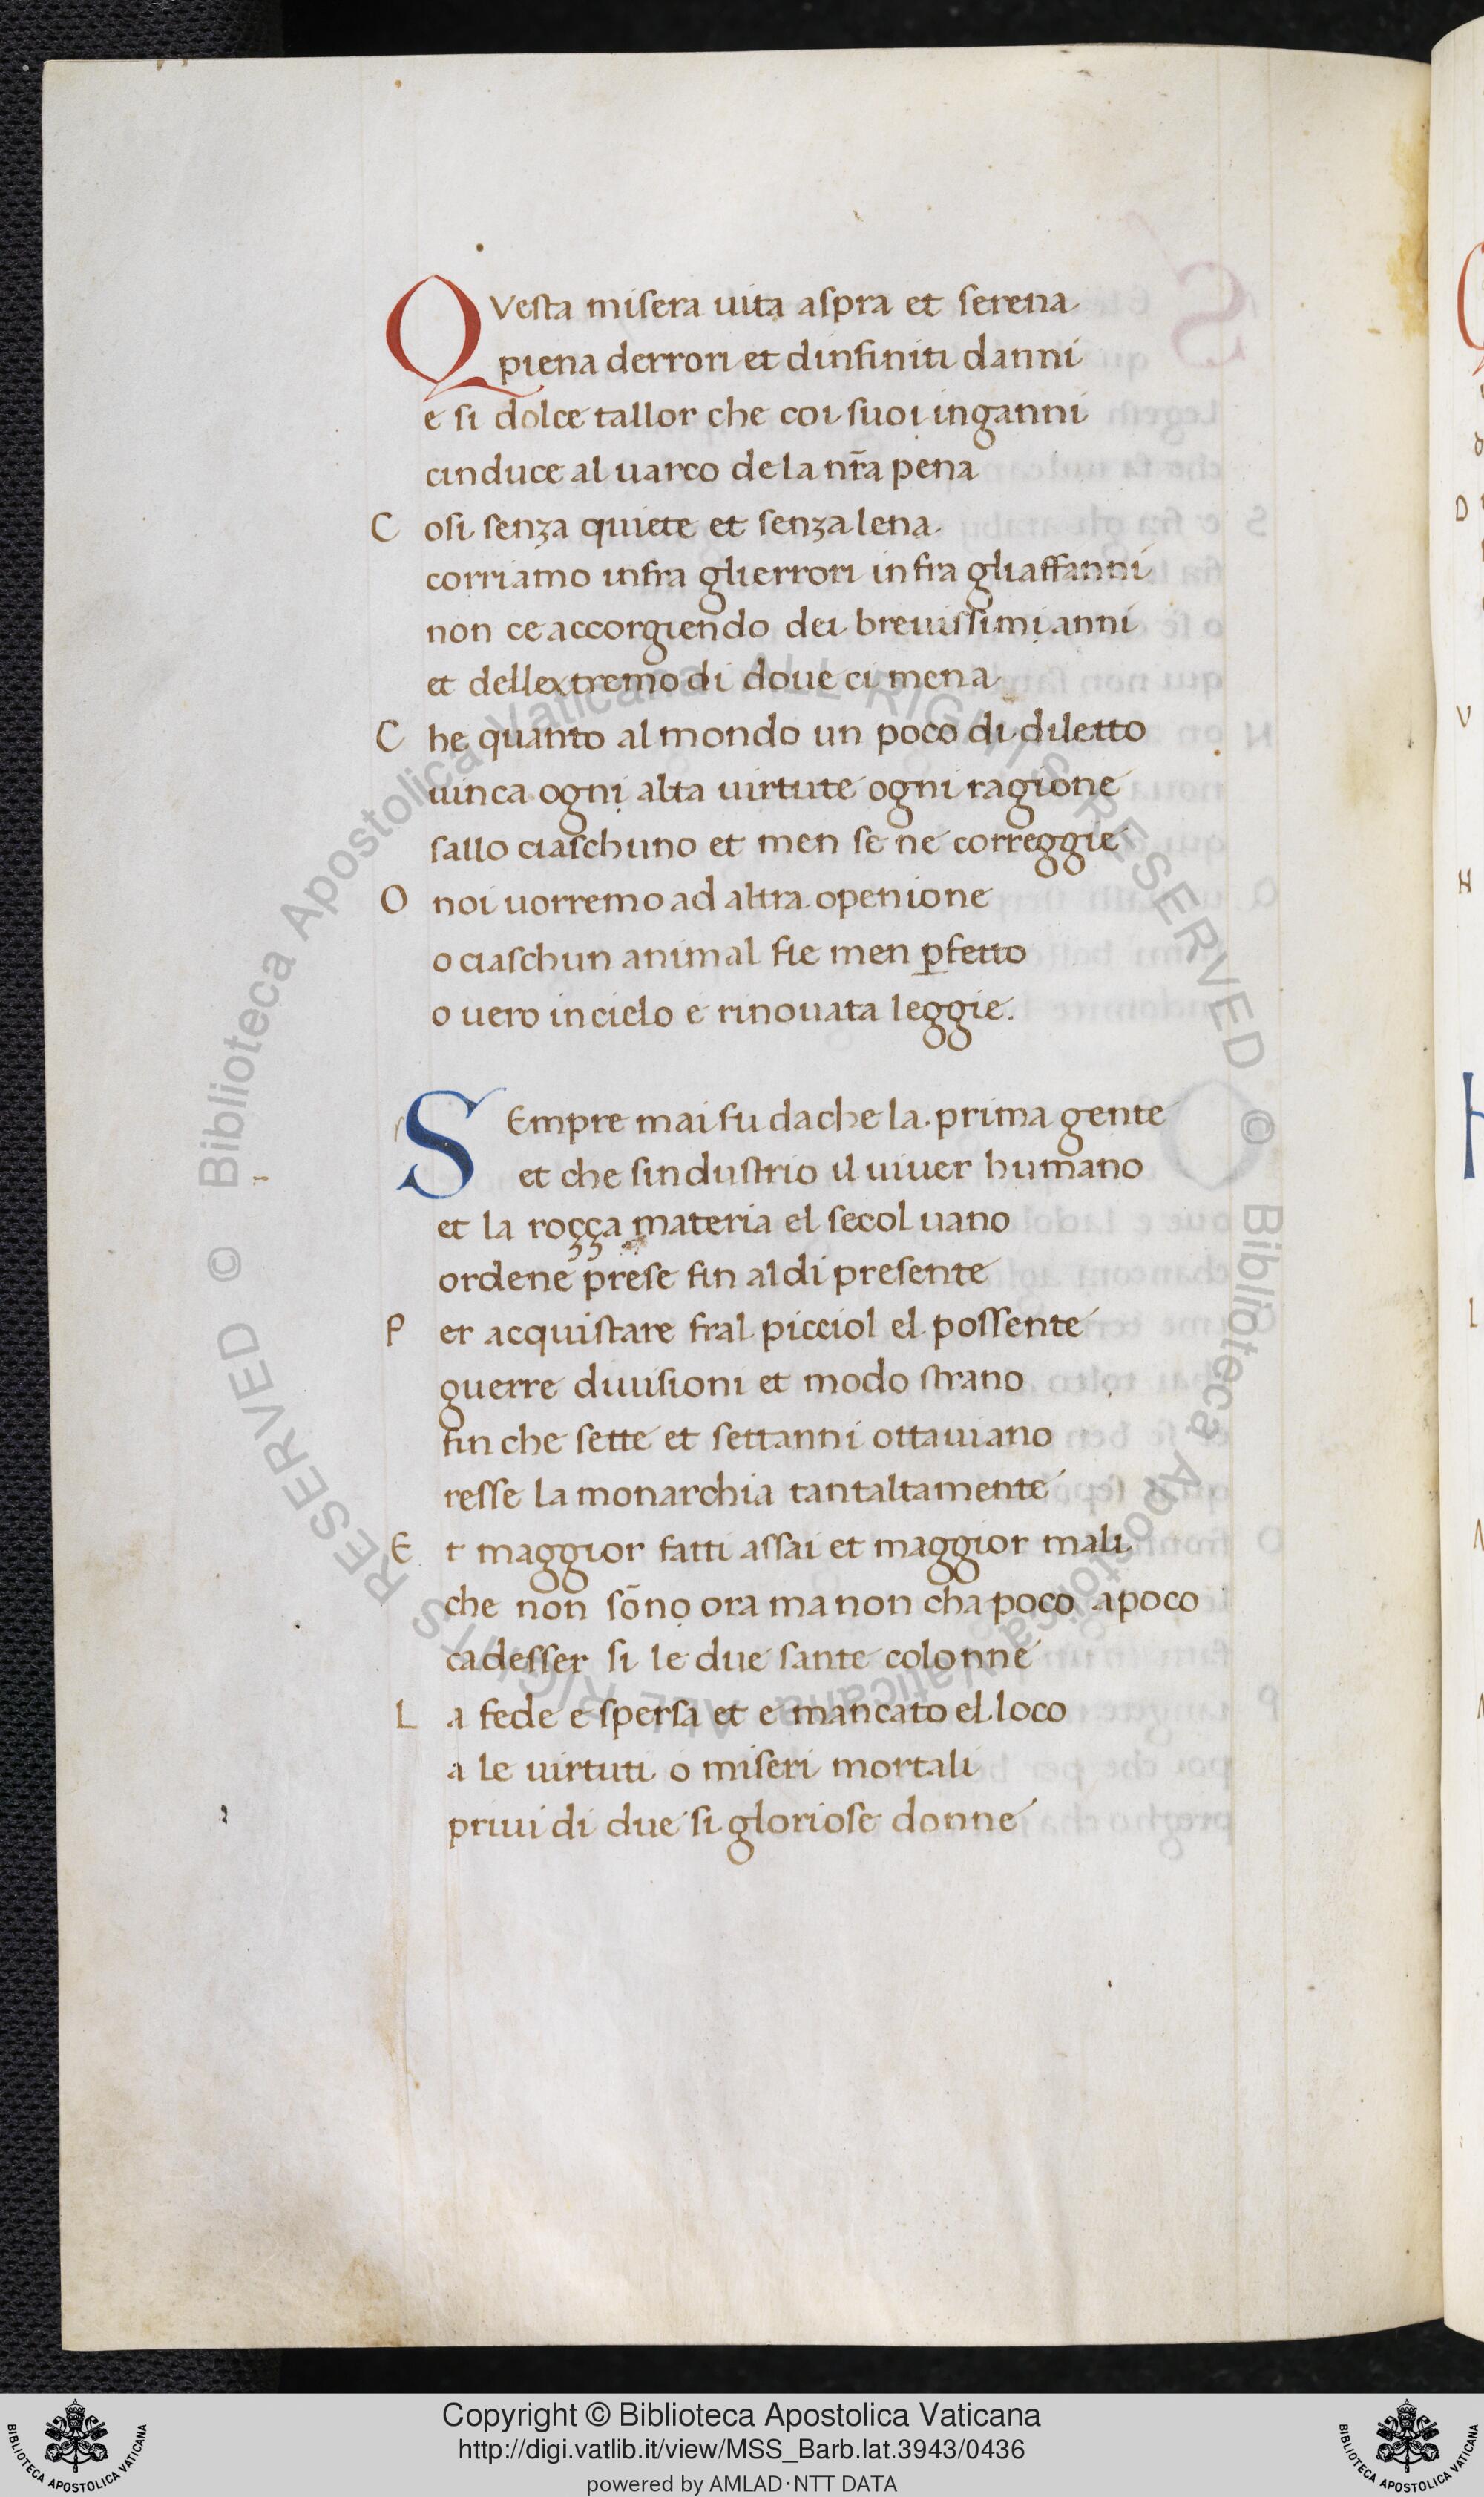 QVesta misera uita aspra et serena
piena derrori et dinfiniti danni
e si dolce tallor che coi suoi inganni
cinduce al uarco de la nr̃a pena
C osi senza quiete et senza lena
corriamo infra glierrori infra gliaffanni
non ce accorgiendo dei breuissimi anni
et dellextremo di doue ci mena
C he quanto al mondo un poco di diletto
uinca ogni alta uirtute ogni ragione
sallo ciaschuno et men se ne correggie
O noi uorremo ad altra openione
o ciaschun animal fie men ꝑfetto
o uero in cielo e rinouata leggie.
SEmpre mai fu da che la prima gente
et che sindustrio il uiuer humano
et la roçça materia el secol uano
ordene prese fin al di presente
P er acquistare fral picciol el possente
guerre diuisioni et modo strano
fin che sette et settanni ottauiano
resse la monarchia tantaltamente
E t maggior fatti assai et maggior mali
che non sōno ora ma non cha poco apoco
cadesser si le due sante colonne
L a fede e spersa et e mancato el loco
a le uirtuti o miseri mortali
priui di due si gloriose donne
Copyright © Biblioteca Apostolica Vaticana
http://digi.vatlib.it/view/MSS_Barb.lat.3943/0436
powered by AMLAD·NTT DATA
BIBLIOTECA APOSTOLICA VATICANA
BIBLIOTECA APOSTOLICA VATICANA
© Biblioteca Apostolica Vaticana ALL RIGHTS RESERVED © Biblioteca Apostolica Vaticana ALL RIGHTS RESERVED